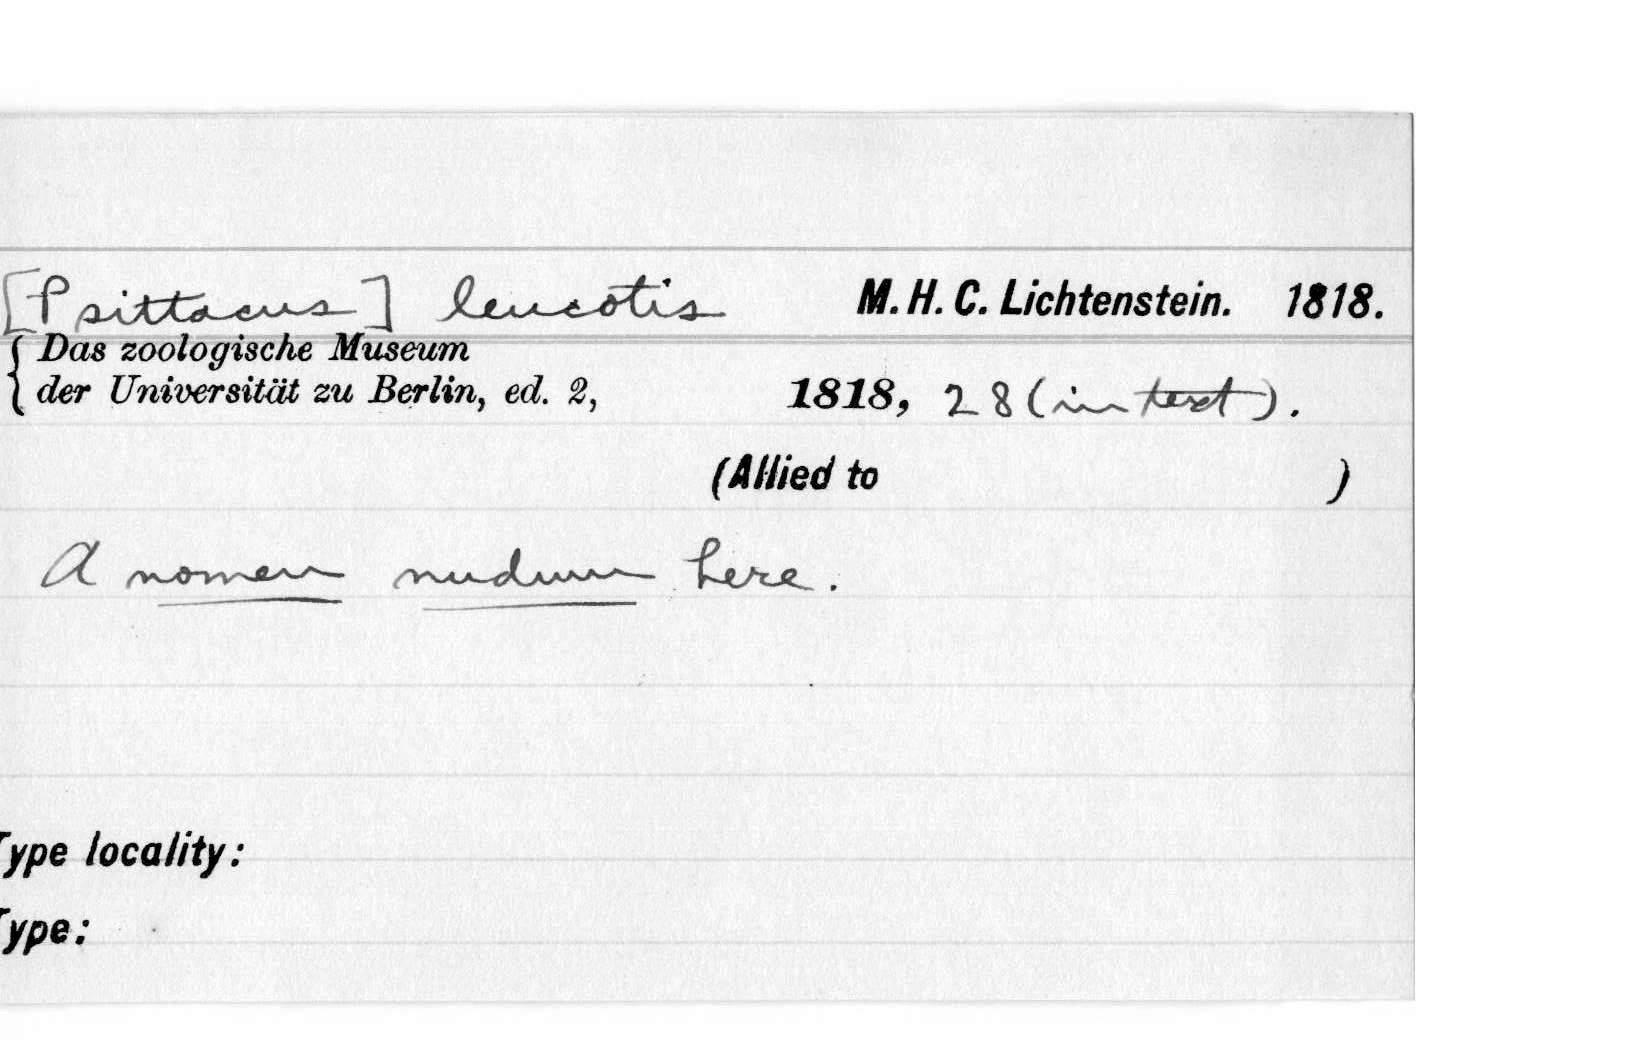 [Psittacus] leucotis M. H. C. Lichtenstein. 1818.
{ Das zoologische Museum
der Universität zu Berlin, ed. 2, 1818, 28 (in text).
(Allied to )
A nomen nudum here.
Type locality:
Type: